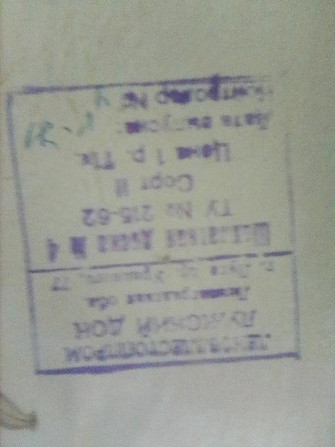 ЛЕНОБЛМЕСТОППРОМ
ЛУЖСКИЙ ДОК
Ленинградская обл.
г. Луга пр. Урицкого, 77
Шахматная доска № 4
ТУ № 215-62
Сорт II
Цена 1 р.
Дата выпуска:
Контролер №